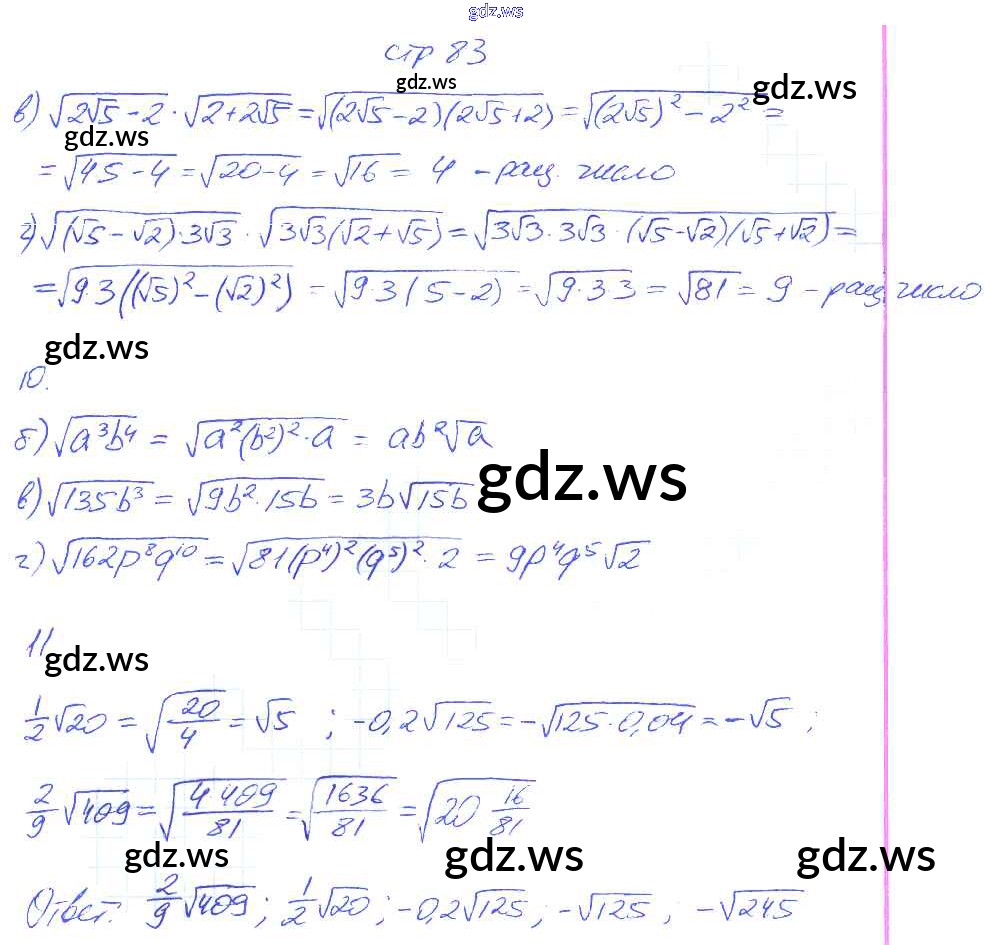 gdz.ws
стр 83
gdz.ws
gdz.ws
в) √(2√5 - 2) · √(2+2√5) = √((2√5 - 2)(2√5+2)) = √((2√5)² - 2²) =
gdz.ws
= √(4·5 - 4) = √(20-4) = √16 = 4 - рац. число
г) √((√5 - √2)·3√3) · √(3√3(√2+√5)) = √(3√3·3√3·(√5-√2)(√5+√2)) =
= √(9·3((√5)²-(√2)²)) = √(9·3(5-2)) = √(9·3·3) = √81 = 9 - рац. число
gdz.ws
10.
б) √(a³b⁴) = √(a²(b²)²·a) = ab²√a
в) √(135b³) = √(9b²·15b) = 3b√(15b)
gdz.ws
г) √(162p⁸q¹⁰) = √(81(p⁴)²(q⁵)²·2) = 9p⁴q⁵√2
11
gdz.ws
1/2 √20 = √(20/4) = √5 ; -0,2√125 = -√(125·0,04) = -√5 ;
2/9 √409 = √(4·409/81) = √(1636/81) = √(20 16/81)
gdz.ws
gdz.ws
gdz.ws
Ответ: 2/9 √409 ; 1/2 √20 ; -0,2√125 ; -√125 ; -√245